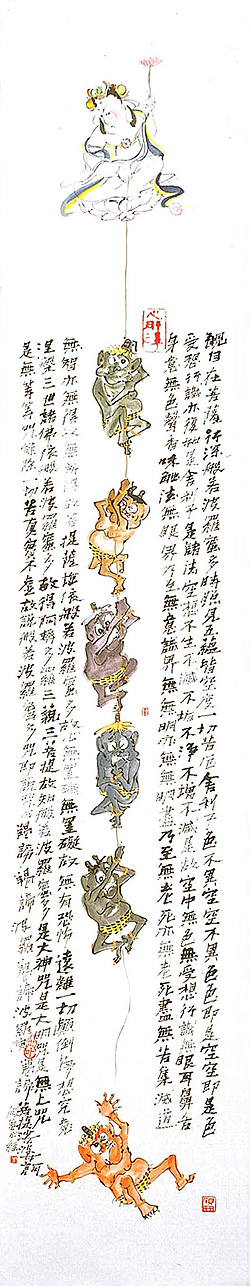 觀自在菩薩行深般若波羅蜜多時照見五蘊皆空度一切苦厄舍利子色不異空空不異色色即是空空即是色
受想行識亦復如是舍利子是諸法空想不生不滅不垢不淨不增不減是故空中無色無受想行識無眼耳鼻舌
身意無色聲香味觸法無眼界乃至無意識界無無明亦無無明盡乃至無老死亦無老死盡無苦集滅道
無智亦無得以無所得故菩提薩埵依般若波羅蜜多故心無罣礙無罣礙故無有恐怖遠離一切顛倒夢想究竟
涅槃三世諸佛依般若波羅蜜多故得阿耨多羅三藐三菩提故知般若波羅蜜多是大神咒是大明咒是無上咒
是無等等咒能除一切苦真實不虛故說般若波羅蜜多咒即說咒曰揭諦揭諦波羅揭諦波羅僧揭諦菩提薩婆訶